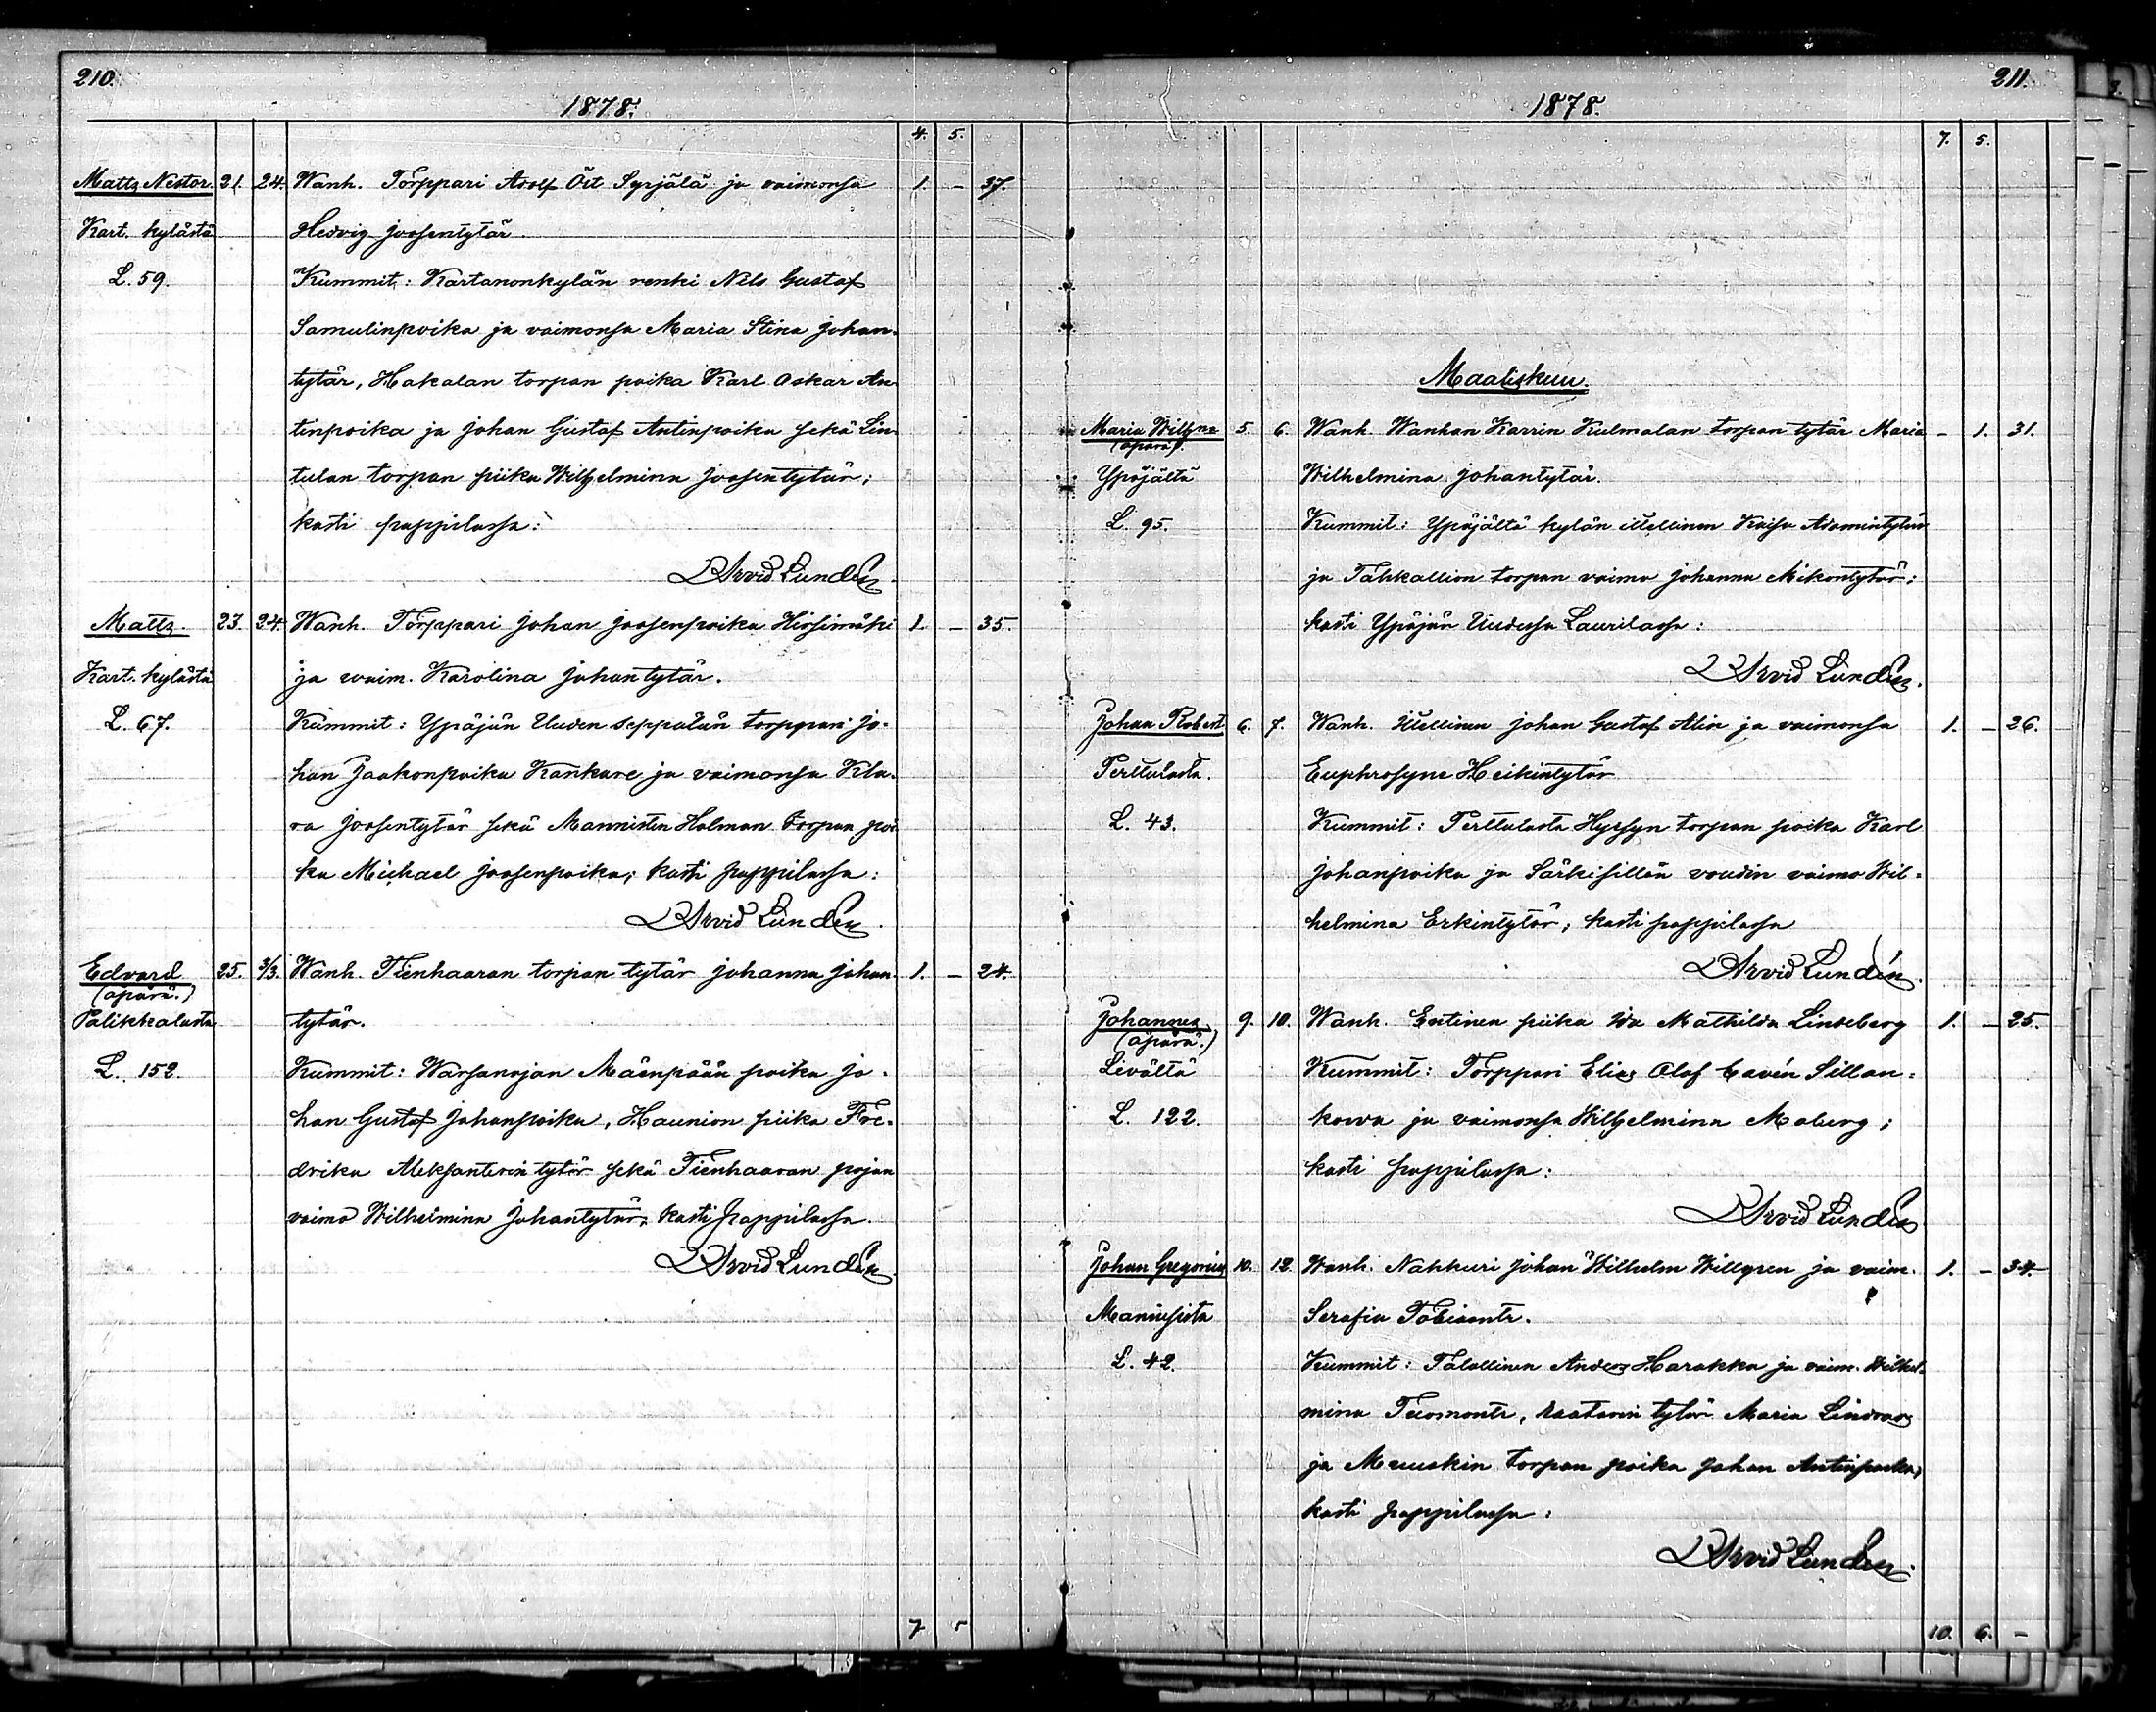 210.
1878.
4. 5.
Matts Nestor. 21. 24. Wanh. Torppari Adolf Öst Syrjälä ja vaimonsa 1. – 37.
Kart. kylästä Hedvig Joosentytär
L. 59. Kummit: Kartanonkylän renki Nils Gustaf
Samulinpoika ja vaimonsa Maria Stina Johan-
tytär, Hakalan torpan poika Karl Oskar An-
tinpoika ja Johan Gustaf Antinpoika sekä Lin-
tulan torpan piika Wilhelmina Joosentytär;
kasti pappilassa:
Arvid Lundén
Matts. 23. 24. Wanh. Torppari Johan Joosenpoika Hirsimäki 1. – 35.
Kart. kylästä ja vaim. Karolina Johantytär.
L. 67. Kummit: Ypäjän Uuden Seppälän torppari Jo-
han Jaakonpoika Kankare ja vaimonsa Kla-
ra Joosentytär sekä Mannisten Holman torpan poi-
ka Michael Joosenpoika; kasti pappilassa:
Arvid Lundén.
Edvard 25. 3/3. Wanh. Tienhaaran torpan tytär Johanna Johan- 1. – 24.
(äpärä.)
Palikkalasta tytär.
L. 152. Kummit: Warsanojan Mäenpään poika Jo-
han Gustaf Johanpoika, Haunion piika Fre-
drika Aleksanterin tytär sekä Tienhaaran pojan
vaimo Wilhelmina Johantytär, kasti pappilassa.
Arvid Lundén
7 5
211.
1878.
7. 5.
Maaliskuu.
Maria Wilh:na 5. 6. Wanh. Wanhan Karrin Kulmalan torpan tytär Maria – 1. 31.
(äpärä).
Ypäjältä Wilhelmina Johantytär.
L. 95. Kummit: Ypäjältä kylän itsellinen Kaisa Adamintytär
ja Tähkallion torpan vaimo Johanna Mikontytär;
kasti Ypäjän Uudessa Laurilassa:
Arvid Lundén.
Johan Robert 6. 7. Wanh. Itsellinen Johan Gustaf Alin ja vaimonsa 1. – 26.
Perttulasta. Euphrosyne Heikintytär
L. 43. Kummit: Perttulasta Hyssyn torpan poika Karl
Johanpoika ja Särkisillän voudin vaimo Wil-
helmina Erkintytär; kasti pappilassa
Arvid Lundén.
Johannes 9. 10. Wanh. Entinen piika Ida Mathilda Lindeberg 1. – 25.
(äpärä.)
Levältä Kummit: Torppari Elias Olof Cavén Sillan-
L. 122. korva ja vaimonsa Wilhelmina Moberg;
kasti pappilassa:
Arvid Lundén
Johan Gregorius 10. 12. Wanh. Nahkuri Johan Wilhelm Willgren ja vaim. 1. – 34.
Manniststa Serafia Tobiantr.
L. 42. Kummit: Talollinen Anders Harakka ja vaim. Wilhel-
mina Tuomontr, raatarin tytär Maria Lindroos
ja Muuskin torpan poika Johan Antinpoika,
kasti pappilassa:
Arvid Lundén.
10. 6. –